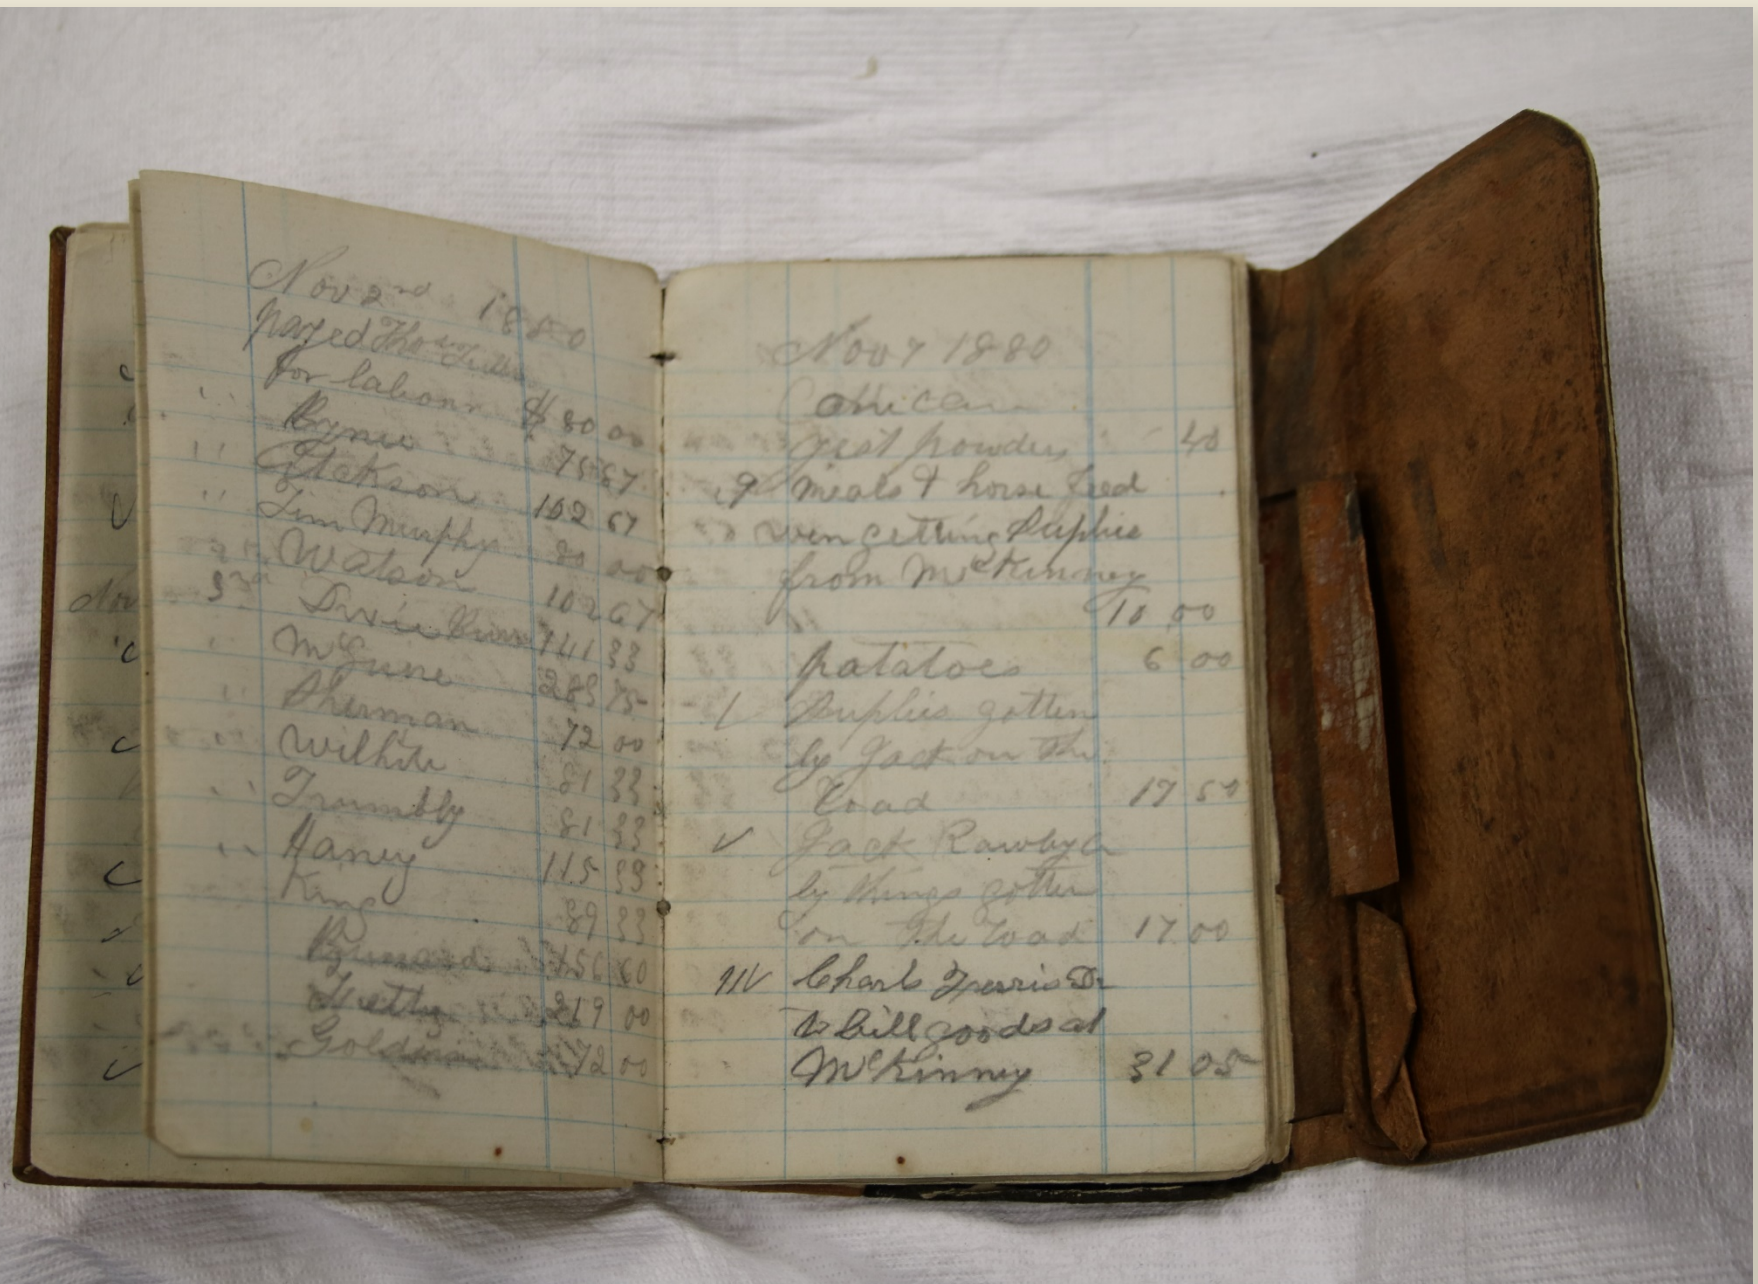 Nov 2nd 1880
payed Thos
for labour $ 80 00
" 75 67
" 102 67
" Jim Murphy 80 00
Watson 102 67
3rd 141 33
" McGuire 75
" Sherman 72 00
" Wilhite 81 33
" Trumbly 81 33
" Haney 115 33
King 89 33
56 60
219 00
72 00
Nov
Nov 7 1880
yest powder 40
9 meals & horse feed
wen getting suplies
from McKinney
10 00
patatoes 6 00
Suplies gotten
by Jack on the
road 17 50
Jack
by things gotten
on the road 17 00
Charls Ferris Dr
to bill goods at
McKinney 31 05